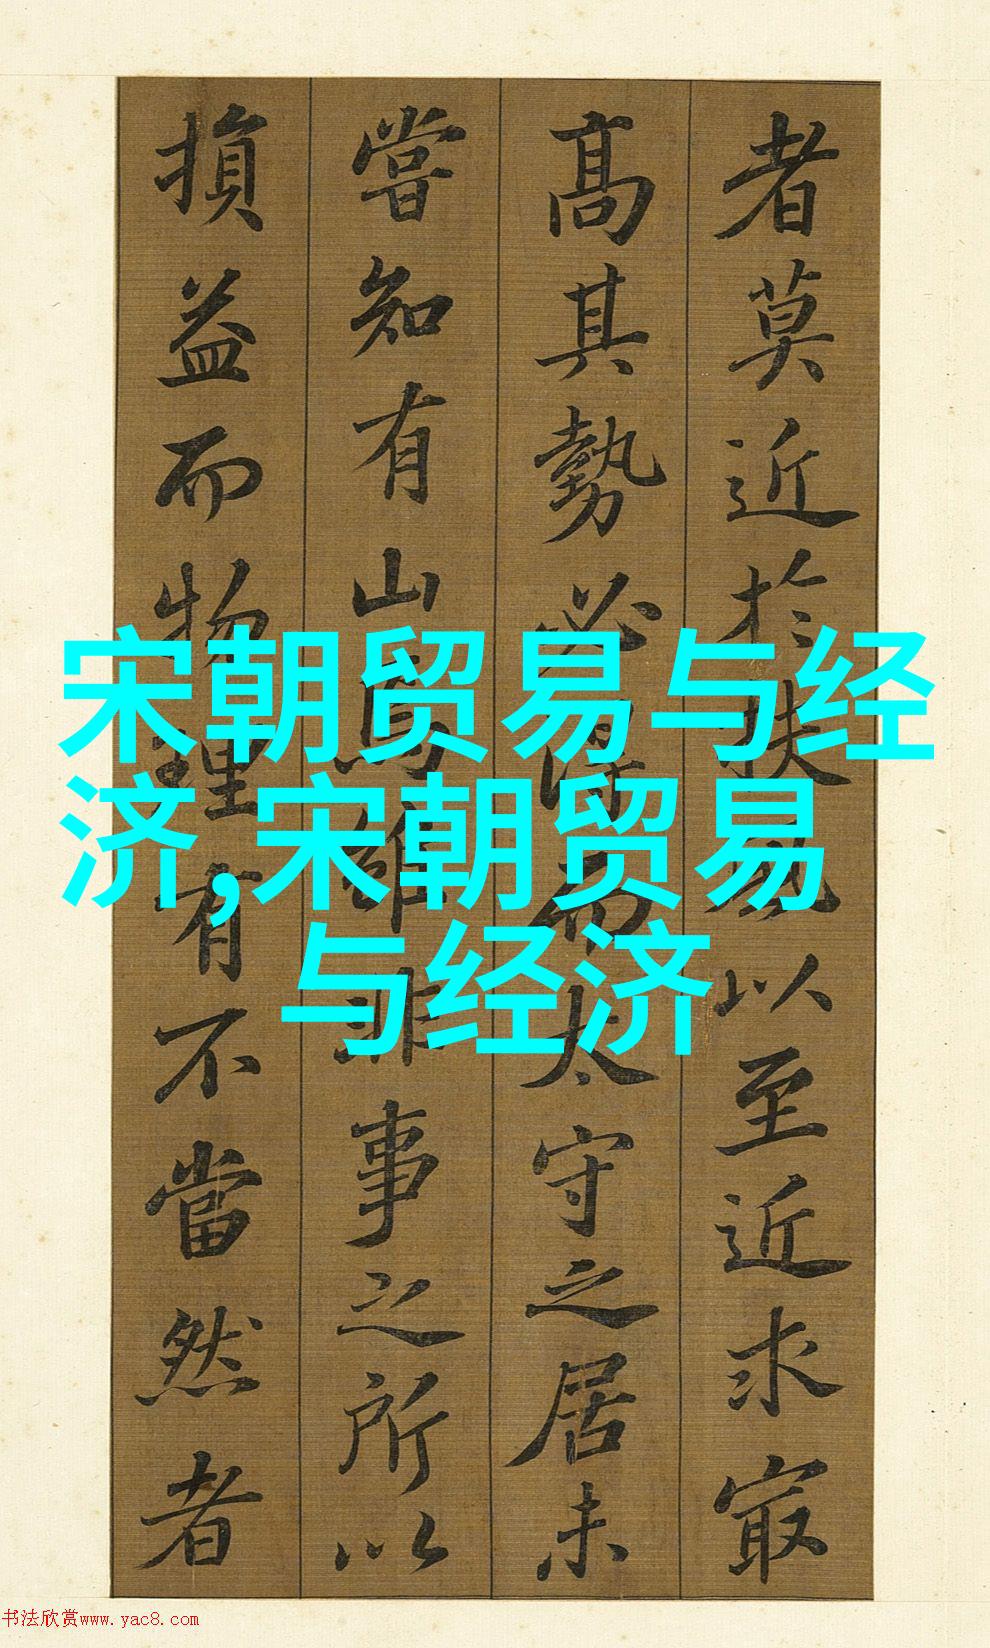 宋朝贸易与经
济,宋朝贸易
与经济
者莫近於扶風以至近求㝡
髙其勢必得而太守之居未
嘗知有山焉雖非事之所以
損益而物理有不當然者
书法欣赏www.yac8.com